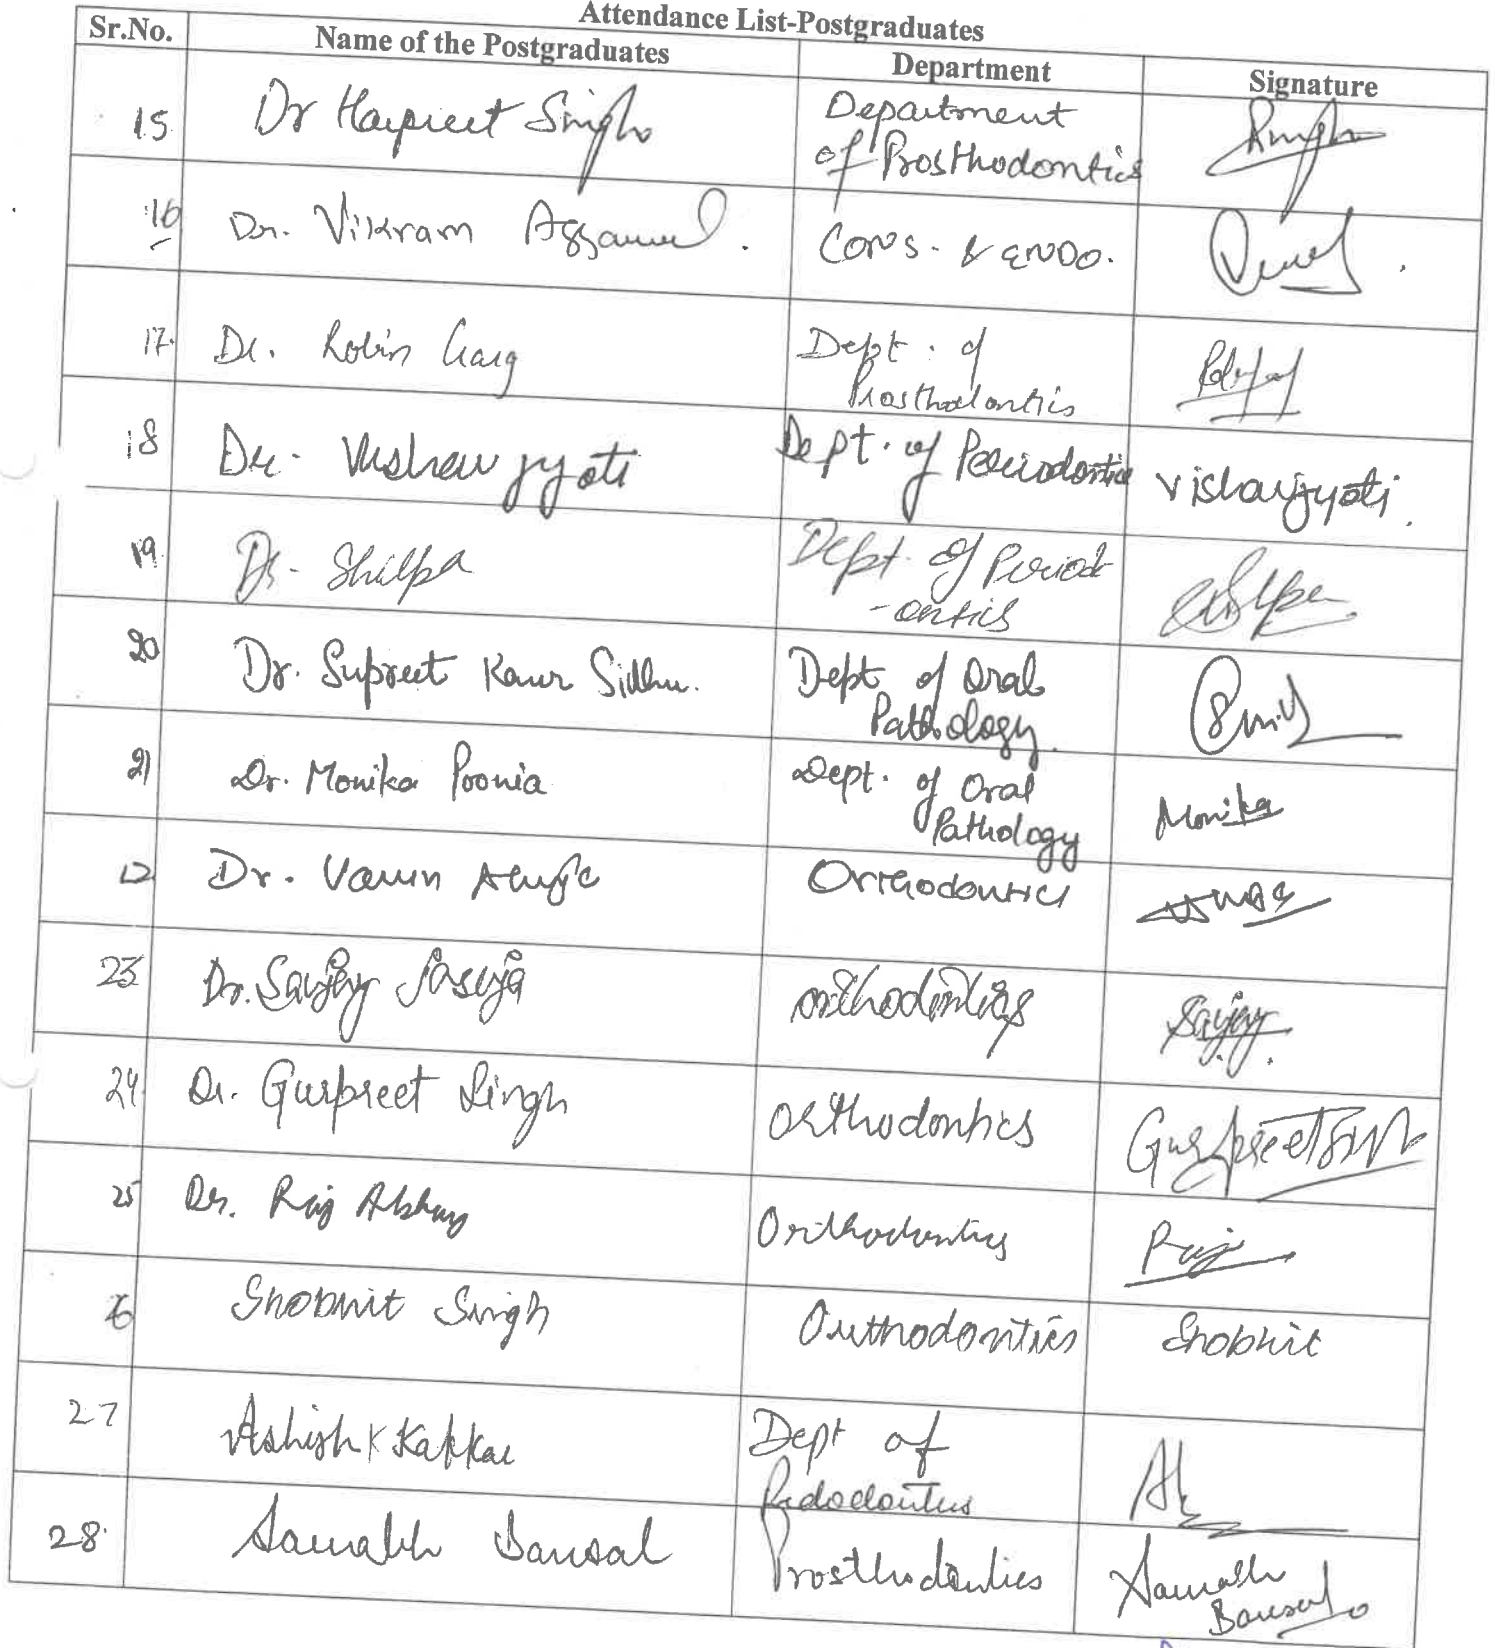 Attendance List-Postgraduates
Sr.No. Name of the Postgraduates Department Signature
15 Dr Harpreet Singh Department of Prosthodontics Singh
16 Dr. Vikram Aggarwal. Cons. & Endo.
17. Dr. Robin Garg Dept. of Prosthodontis
18 Dr. Vishav jyoti Dept. of Periodontia Vishavjyoti.
19. Dr. Shilpa Dept. of Period-ontics
20 Dr. Supreet Kaur Sidhu. Dept of Oral Pathology.
21 Dr. Monika Poonia Dept. of Oral Pathology Monika
Dr. Varun Ahuja Orthodontics
23 Dr. Sanjay Jasuja Orthodontics Sanjay
24. Dr. Gurpreet Singh Orthodontics Gurpreet Singh
25 Dr. Raj Abhay Orthodontics Raj
Shobhit Singh Orthodontics Shobhit
27 Ashish K Kakkar Dept of Pedodontics
28. Saurabh Bansal Prosthodontics Saurabh Bansal